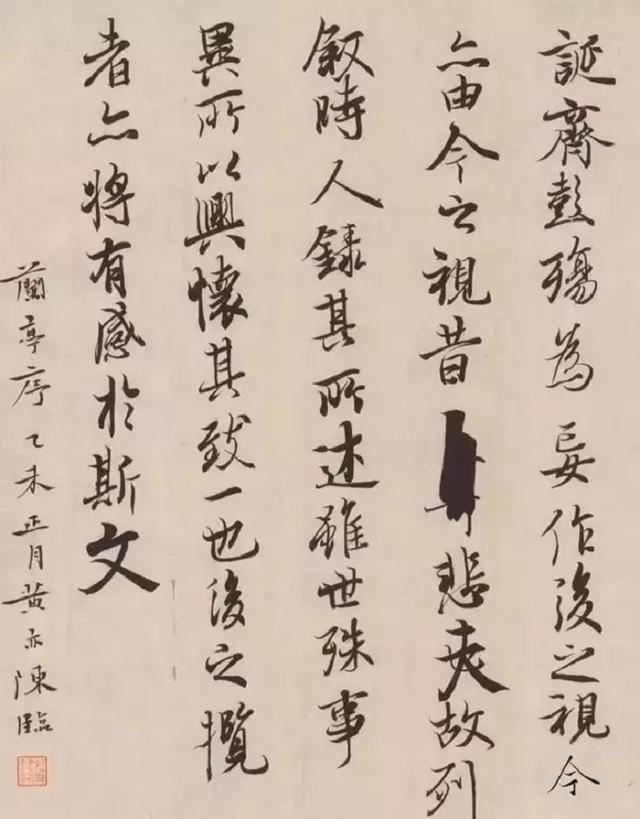 誕齊彭殤為妄作後之視今
亦由今之視昔悲夫故列
叙時人録其所述雖世殊事
異所以興懷其致一也後之攬
者亦將有感於斯文
蘭亭序乙未正月黄亦陳臨